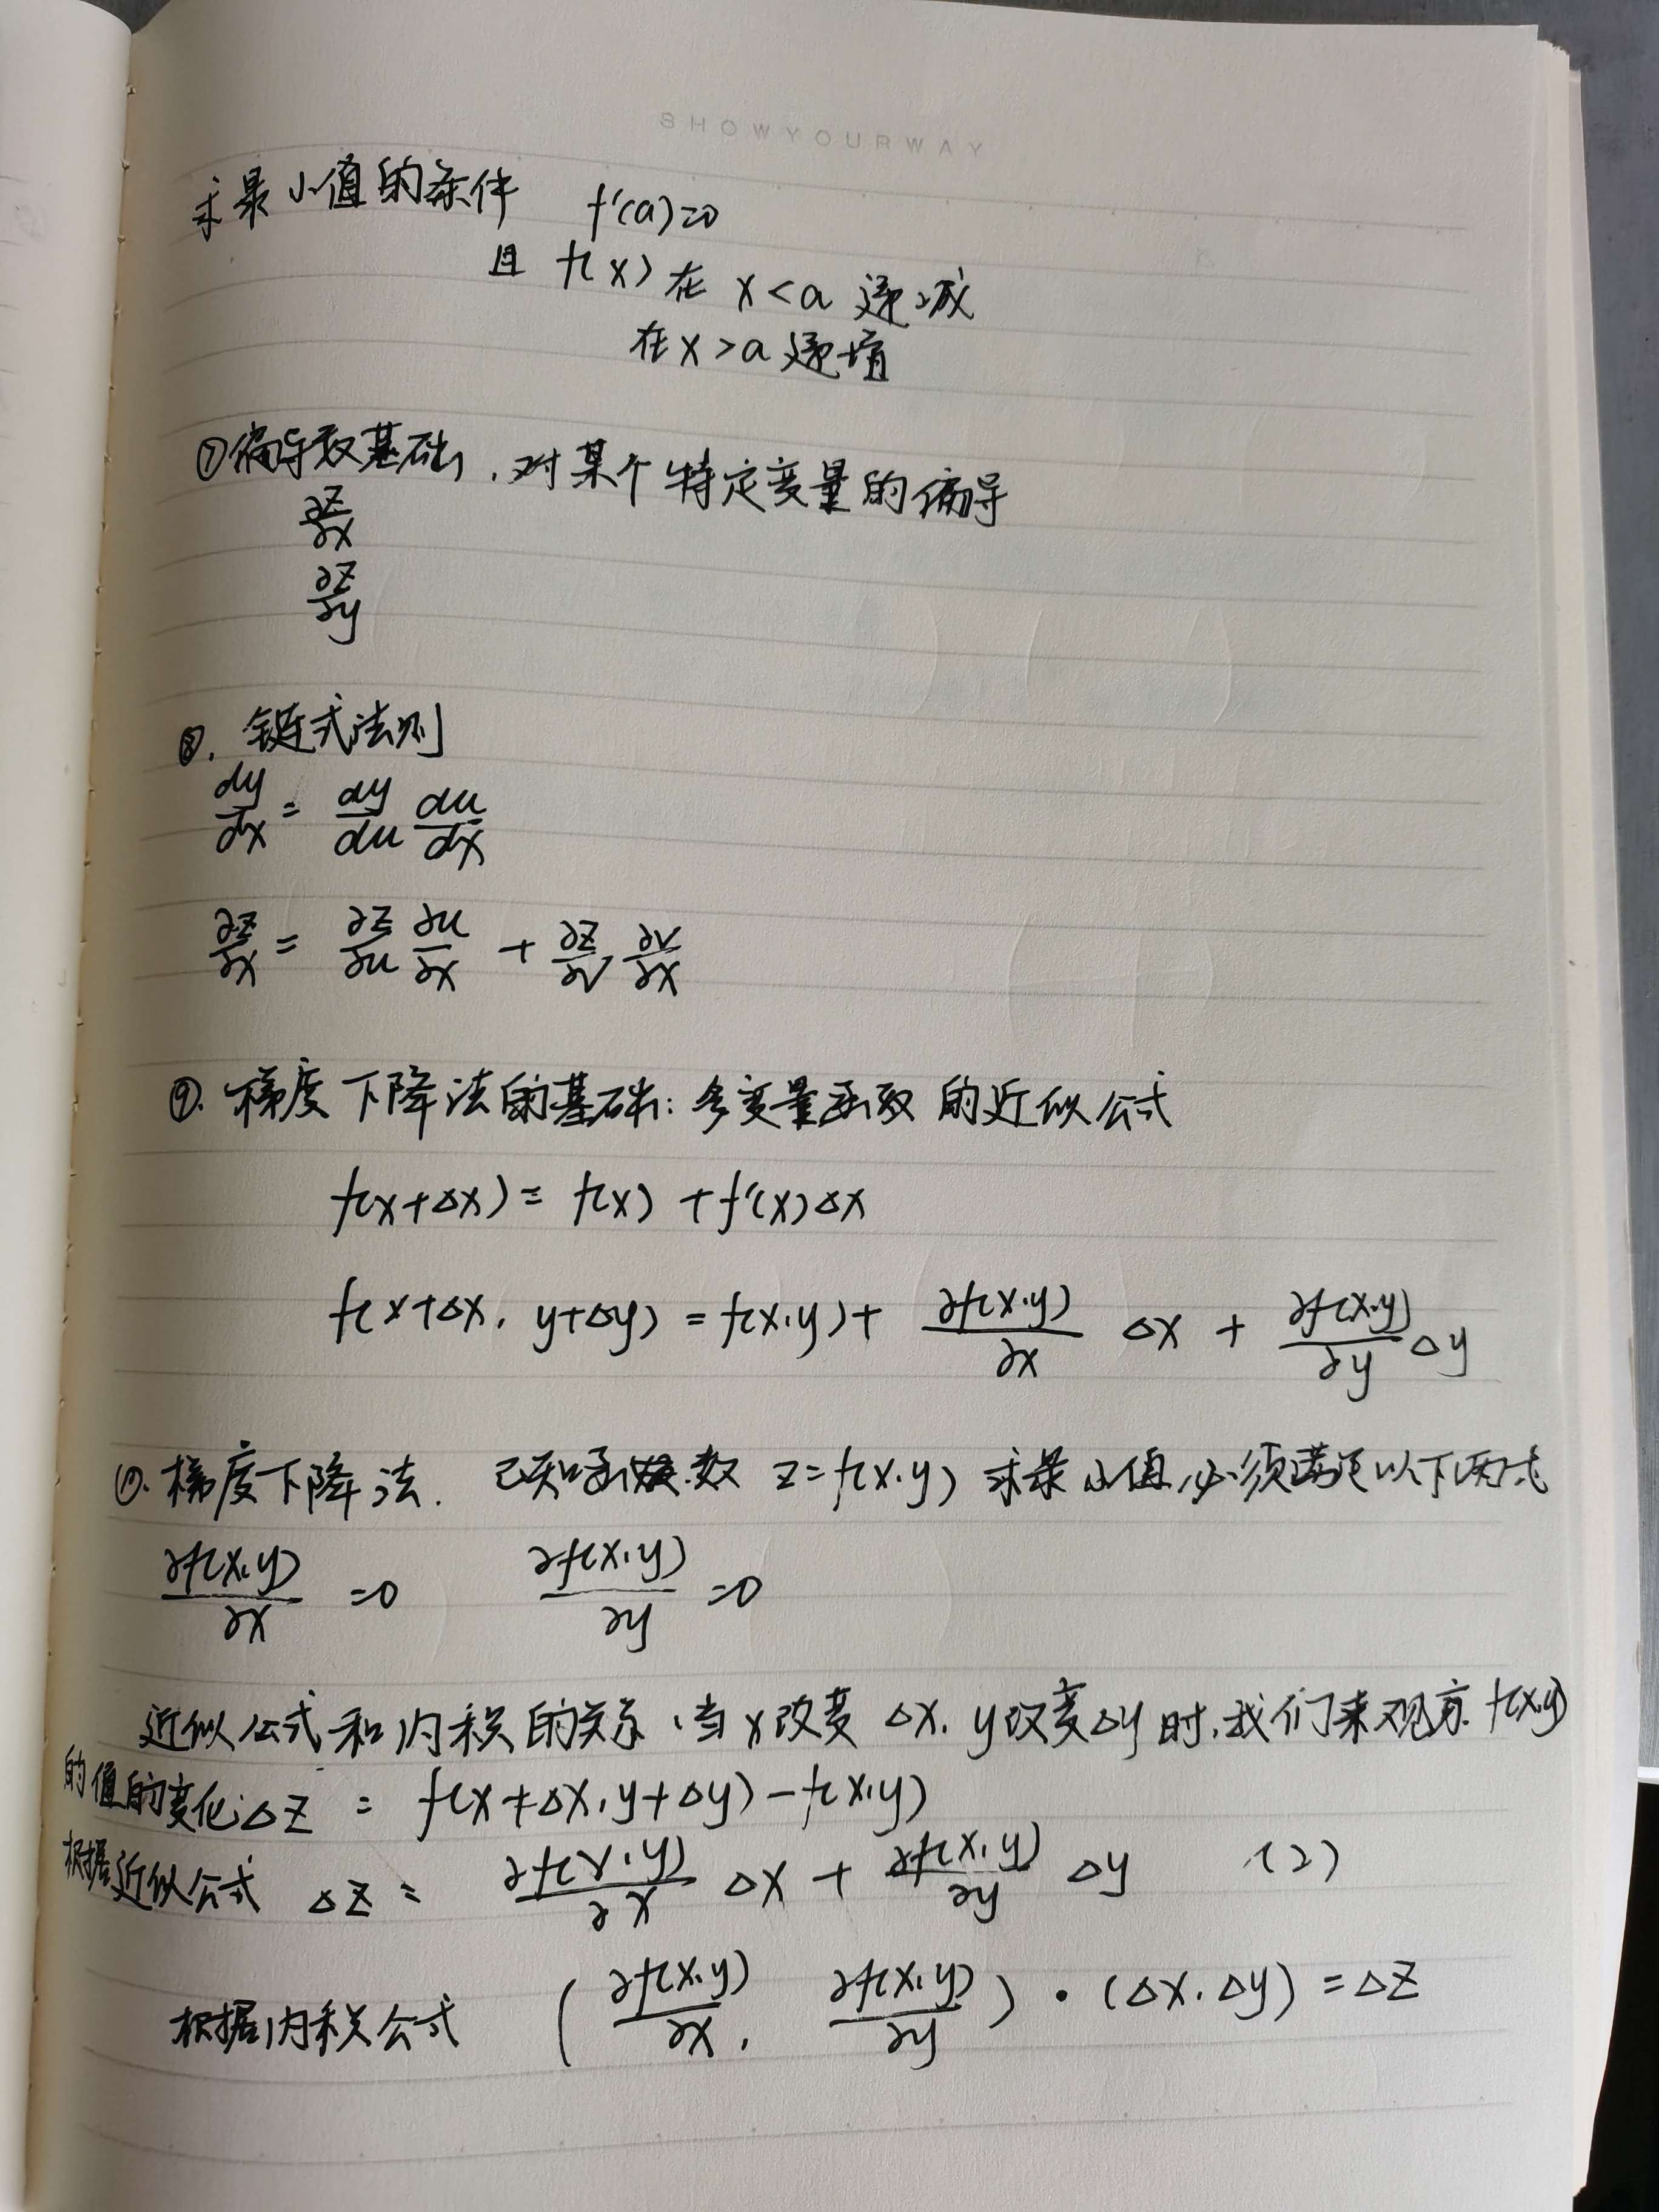 SHOWYOURWAY
求最小值的条件 f'(a)=0
且 f(x) 在 x<a 递减
在 x>a 递增
⑦偏导数基础,对某个特定变量的偏导
∂z/∂x
∂z/∂y
⑧. 链式法则
dy/dx = dy/du du/dx
∂z/∂x = ∂z/∂u ∂u/∂x + ∂z/∂v ∂v/∂x
⑨. 梯度下降法的基础: 多变量函数的近似公式
f(x+Δx) = f(x) + f'(x)Δx
f(x+Δx, y+Δy) = f(x,y) + ∂f(x,y)/∂x Δx + ∂f(x,y)/∂y Δy
⑩. 梯度下降法. 已知函数 z=f(x,y) 求最小值,必须满足以下两式
∂f(x,y)/∂x =0 ∂f(x,y)/∂y =0
近似公式和内积的关系,当x改变 Δx, y改变Δy时,我们来观察 f(x,y)
的值的变化:Δz = f(x+Δx, y+Δy) - f(x,y)
根据近似公式 Δz = ∂f(x,y)/∂x Δx + ∂f(x,y)/∂y Δy (2)
根据内积公式 (∂f(x,y)/∂x, ∂f(x,y)/∂y) • (Δx, Δy) = Δz